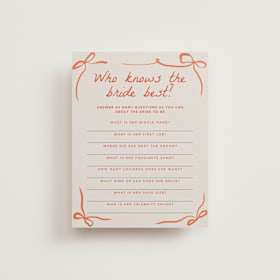 Who knows the
bride best?
ANSWER AS MANY QUESTIONS AS YOU CAN
ABOUT THE BRIDE TO BE
WHAT IS HER MIDDLE NAME?
WHAT IS HER FIRST JOB?
WHERE DID SHE MEET THE GROOM?
WHAT IS HER FAVOURITE SONG?
HOW MANY CHILDREN DOES SHE WANT?
WHAT KIND OF CAR DOES SHE DRIVE?
WHAT IS HER SHOE SIZE?
WHO IS HER CELEBRITY CRUSH?